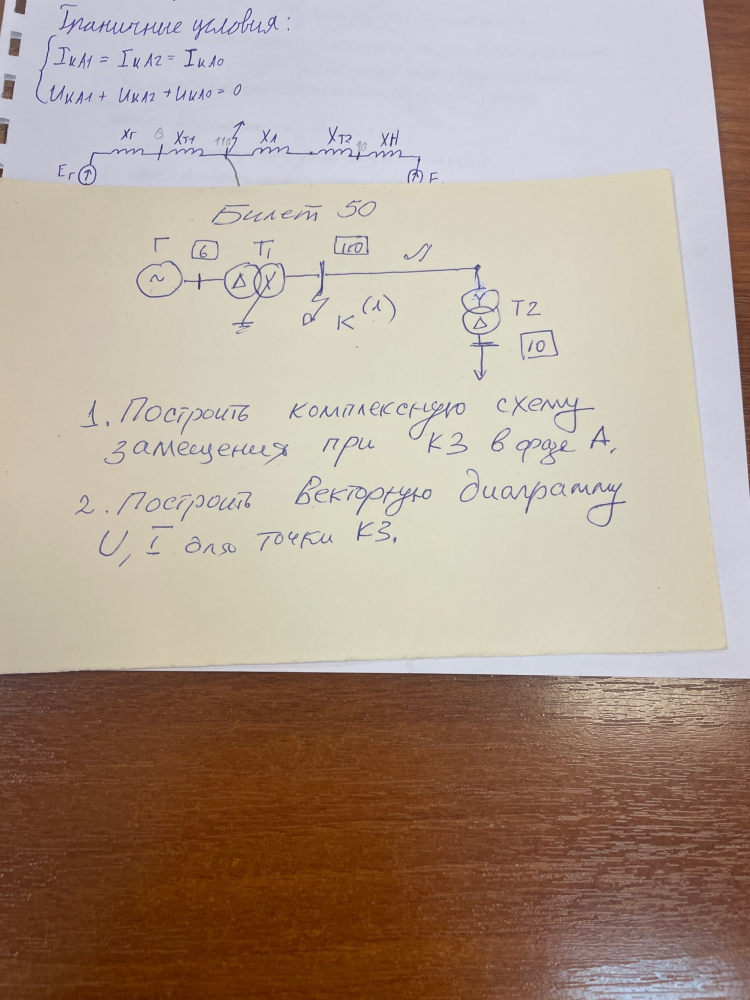 Граничные условия:
IкA1 = IкA2 = IкA0
UкA1 + UкA2 + UкA0 = 0
Xг 6 XT1 110 XЛ XT2 10 XН
Eг E
Билет 50
Г 6 T1 110 Л
~ Δ Y
K (1)
Y Δ T2
10
1. Построить комплексную схему
замещения при КЗ в фазе А.
2. Построить векторную диаграмму
U, I для точки КЗ.